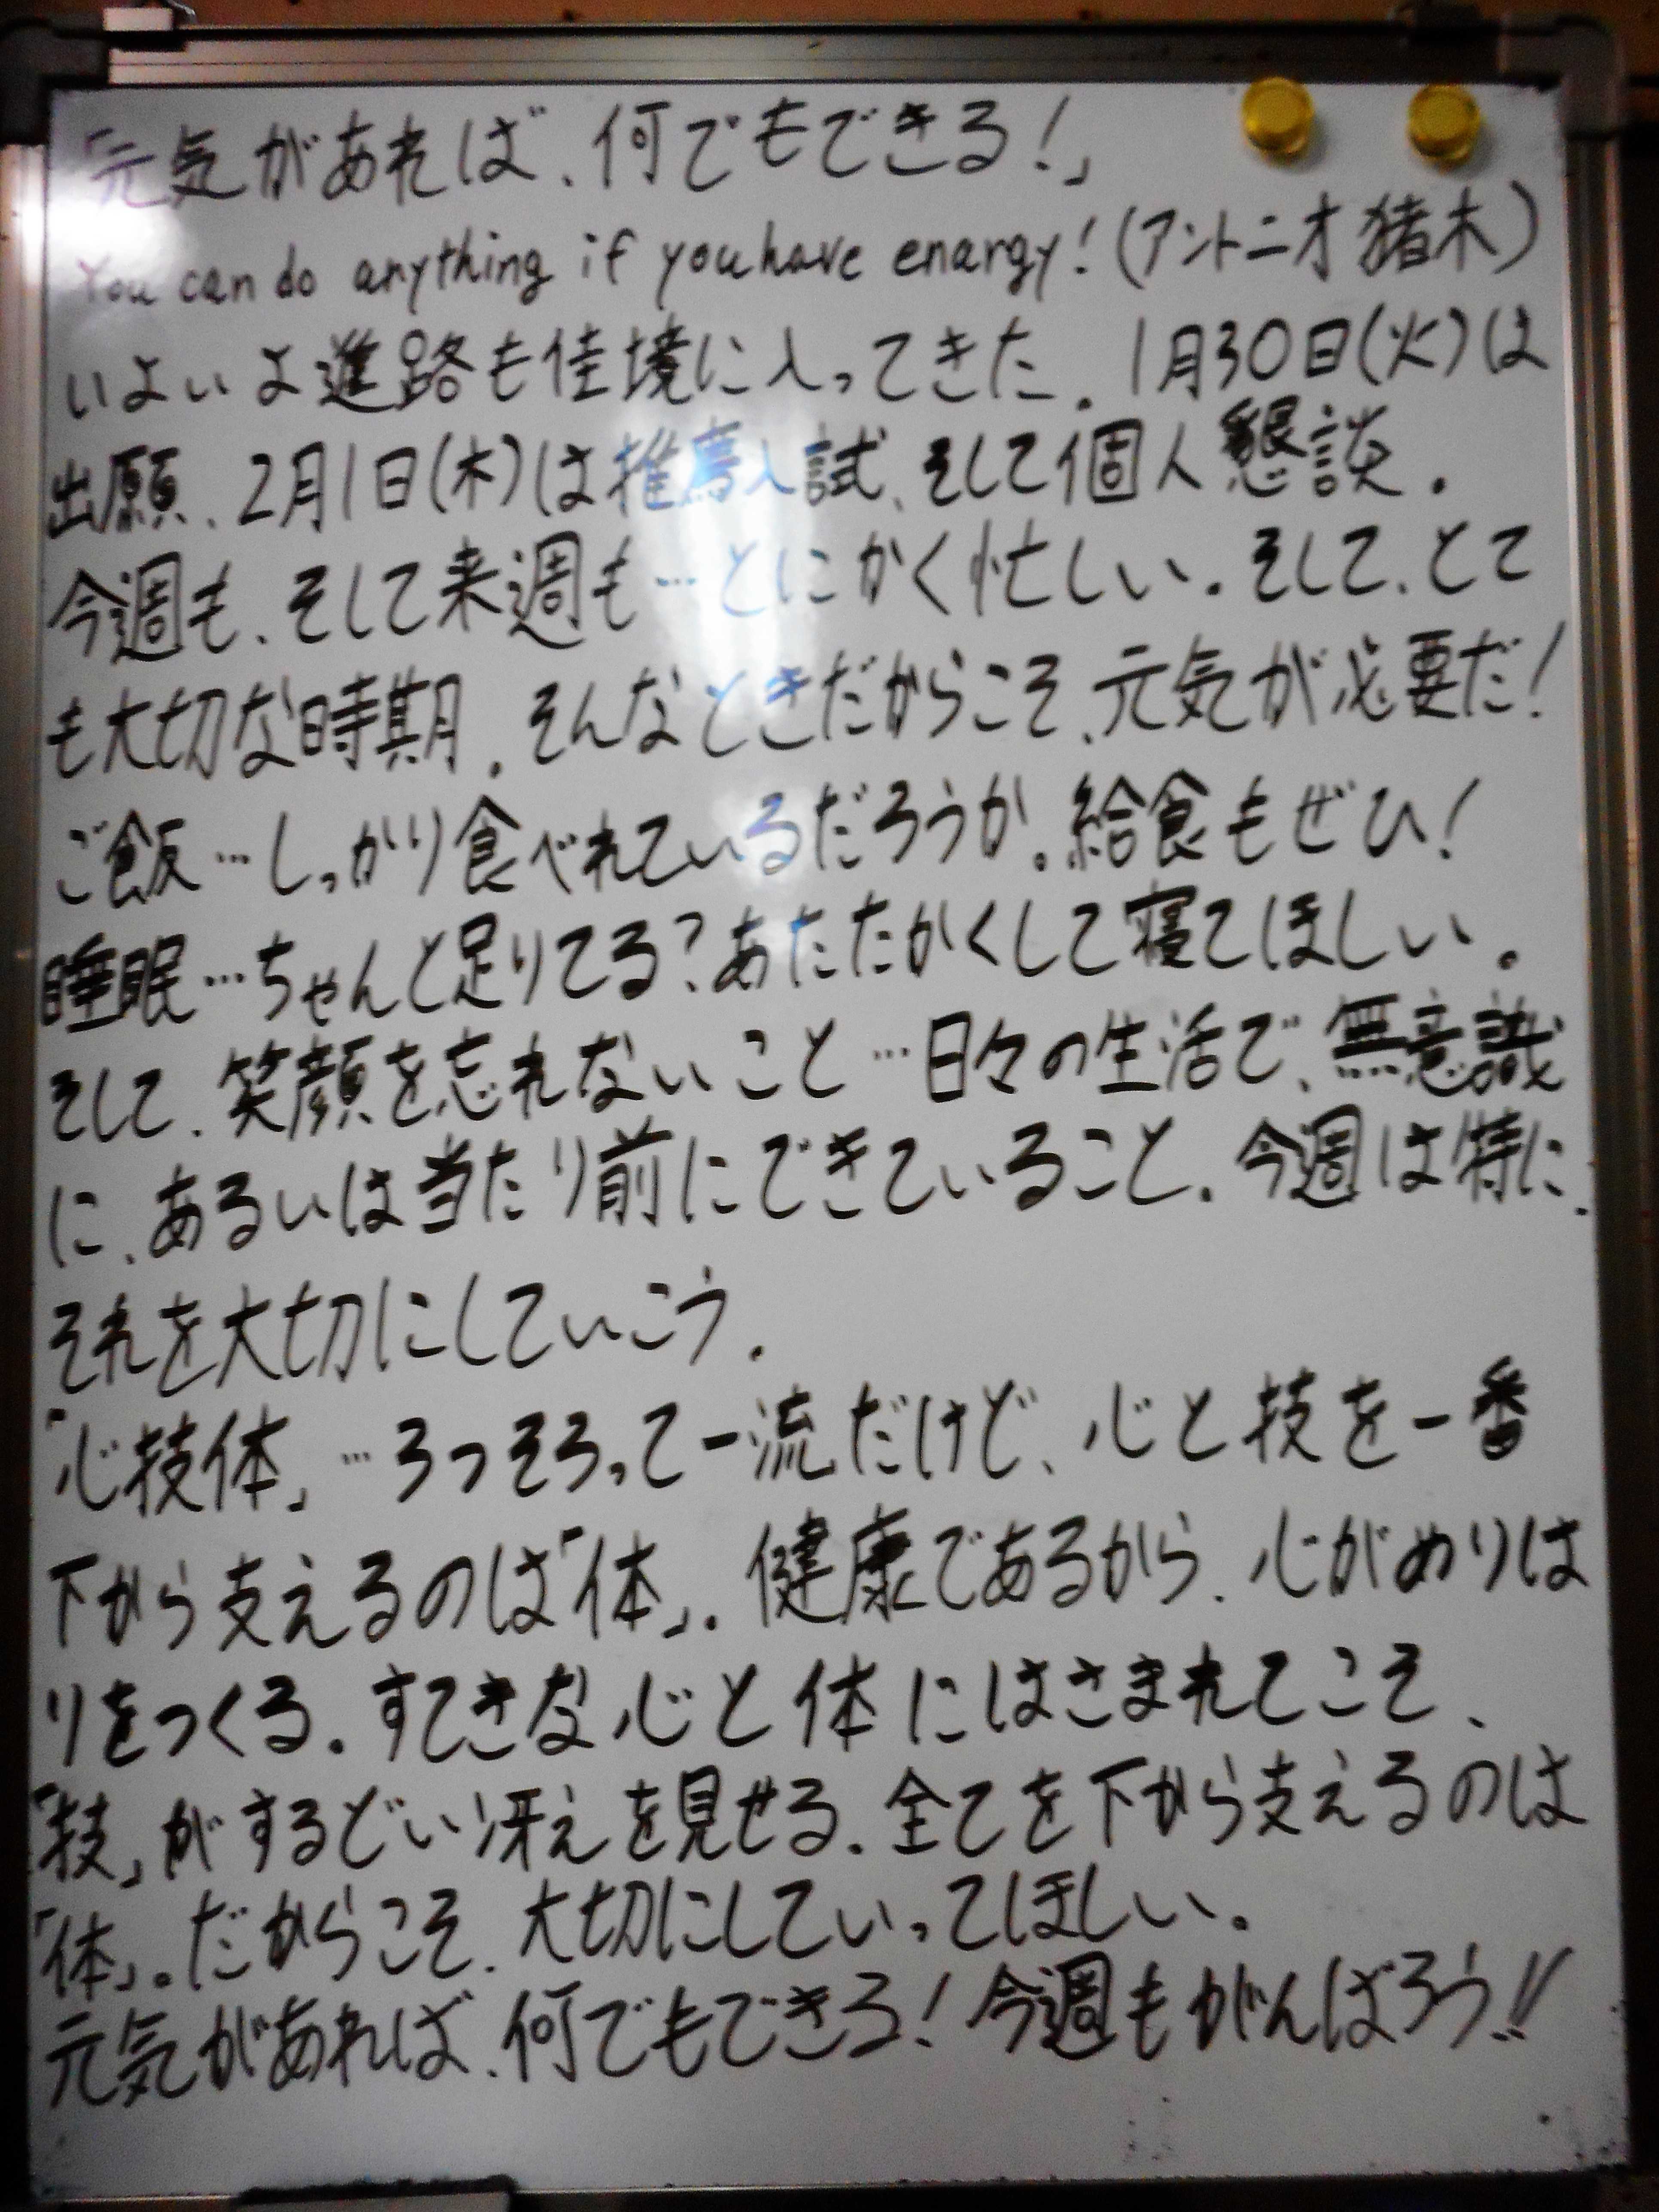 「元気があれば、何でもできる!」
You can do anything if you have enargy!(アントニオ猪木)
いよいよ進路も佳境に入ってきた。1月30日(火)は
出願、2月1日(木)は推薦入試、そして個人懇談。
今週も、そして来週も…とにかく忙しい。そして、とて
も大切な時期。そんなときだからこそ、元気が必要だ!
ご飯…しっかり食べれているだろうか。給食もぜひ!
睡眠…ちゃんと足りてる?あたたかくして寝てほしい。
そして、笑顔を忘れないこと…日々の生活で、無意識
に、あるいは当たり前にできていること。今週は特に、
それを大切にしていこう。
「心技体」…3つそろって一流だけど、心と技を一番
下から支えるのは「体」。健康であるから、心がめりは
りをつくる。すてきな心と体にはさまれてこそ、
「技」がするどい冴えを見せる。全てを下から支えるのは
「体」。だからこそ、大切にしていってほしい。
元気があれば、何でもできる!今週もがんばろう!!